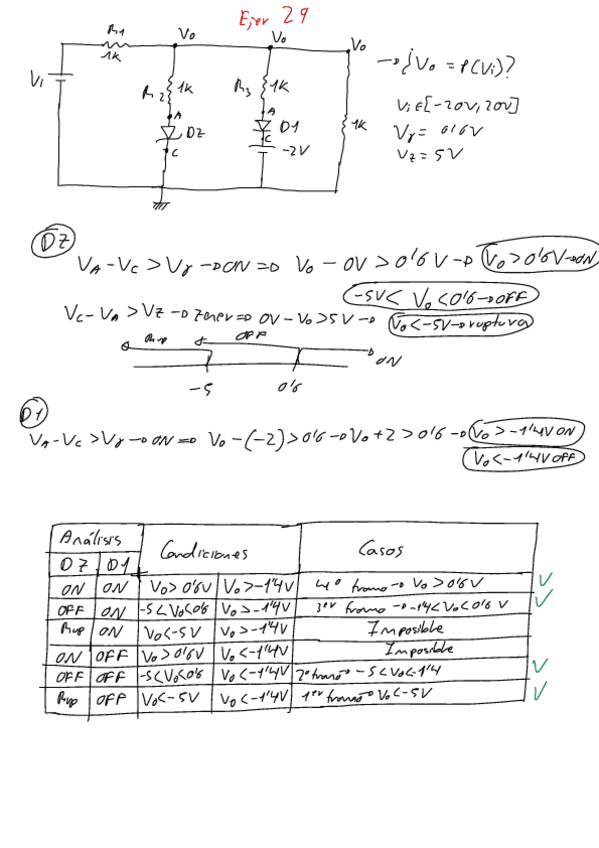 Ejer 29
R1
1K
Vo
Vo
Vo
Vi
R2
1K
R3
1K
1K
A
DZ
C
A
D1
C
-2V
→ ¿Vo = f(Vi)?
Vi ∈ [-20V, 20V]
Vγ = 0'6V
VZ = 5V
DZ
VA - VC > Vγ → ON ⇒ Vo - 0V > 0'6V → Vo > 0'6V → ON
-5V < Vo < 0'6 → OFF
VC - VA > VZ → zener ⇒ 0V - Vo > 5V → Vo < -5V → ruptura
Rup OFF ON
-5 0'6
D1
VA - VC > Vγ → ON ⇒ Vo - (-2) > 0'6 → Vo + 2 > 0'6 → Vo > -1'4V ON
Vo < -1'4V OFF
Análisis Condiciones Casos
DZ D1
ON ON Vo > 0'6V Vo > -1'4V 4º tramo → Vo > 0'6V ✓
OFF ON -5 < Vo < 0'6 Vo > -1'4V 3er tramo → -1'4 < Vo < 0'6 V ✓
Rup ON Vo < -5V Vo > -1'4V Imposible
ON OFF Vo > 0'6V Vo < -1'4V Imposible
OFF OFF -5 < Vo < 0'6 Vo < -1'4V 2º tramo → -5 < Vo < -1'4 ✓
Rup OFF Vo < -5V Vo < -1'4V 1er tramo → Vo < -5V ✓